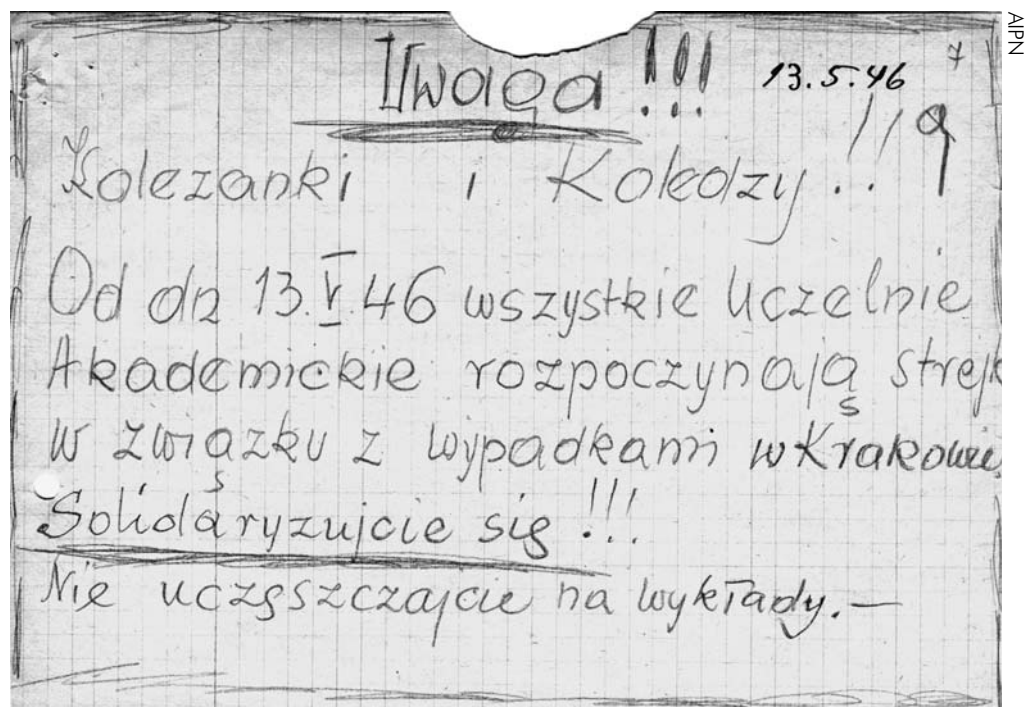 Uwaga !!!
13.5.46
7
9
Kolezanki i Koledzy..!!
Od dn 13.V.46 wszystkie Uczelnie
Akademickie rozpoczynają strejk
w związku z wypadkami w Krakowie.
Solidaryzujcie się !!!
Nie uczęszczajcie na wykłady.—
AIPN